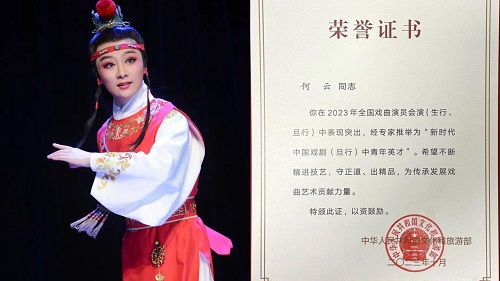 荣誉证书
何 云 同志
你在2023年全国戏曲演员会演（生行、
旦行）中表现突出，经专家推举为“新时代
中国戏剧（旦行）中青年英才”。希望不断
精进技艺，守正道、出精品，为传承发展戏
曲艺术贡献力量。
特颁此证，以资鼓励。
中华人民共和国文化和旅游部
二〇二三年十月
中华人民共和国文化和旅游部